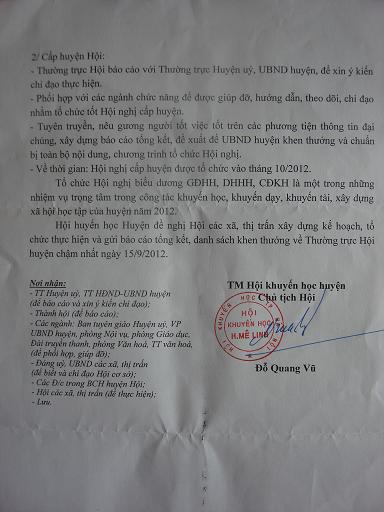 2/ Cấp huyện Hội:
- Thường trực Hội báo cáo với Thường trực Huyện uỷ, UBND huyện, để xin ý kiến
chỉ đạo thực hiện.
- Phối hợp với các ngành chức năng để được giúp đỡ, hướng dẫn, theo dõi, chỉ đạo
nhằm tổ chức tốt Hội nghị cấp huyện.
- Tuyên truyền, nêu gương người tốt việc tốt trên các phương tiện thông tin đại
chúng, xây dựng báo cáo tổng kết, đề xuất để UBND huyện khen thưởng và chuẩn
bị toàn bộ nội dung, chương trình tổ chức Hội nghị.
- Về thời gian: Hội nghị cấp huyện được tổ chức vào tháng 10/2012.
Tổ chức Hội nghị biểu dương GĐHH, DHHH, CĐKH là một trong những
nhiệm vụ trọng tâm trong công tác khuyến học, khuyến dạy, khuyến tài, xây dựng
xã hội học tập của huyện năm 2012.
Hội khuyến học Huyện đề nghị Hội các xã, thị trấn xây dựng kế hoạch, tổ
chức thực hiện và gửi báo cáo tổng kết, danh sách khen thưởng về Thường trực Hội
huyện chậm nhất ngày 15/9/2012.
Nơi nhận:
- TT Huyện uỷ, TT HĐND-UBND huyện
(để báo cáo và xin ý kiến chỉ đạo);
- Thành hội (để báo cáo);
- Các ngành: Ban tuyên giáo Huyện uỷ, VP
UBND huyện, phòng Nội vụ, phòng Giáo dục,
Đài truyền thanh, phòng Văn hoá, TT văn hoá,
(để phối hợp, giúp đỡ);
- Đảng uỷ, UBND các xã, thị trấn
(để biết và chỉ đạo Hội cơ sở);
- Các Đ/c trong BCH huyện Hội;
- Hội các xã, thị trấn (để thực hiện);
- Lưu.
TM Hội khuyến học huyện
Chủ tịch Hội
HỘI
KHUYẾN HỌC
H.MÊ LINH
Đỗ Quang Vũ